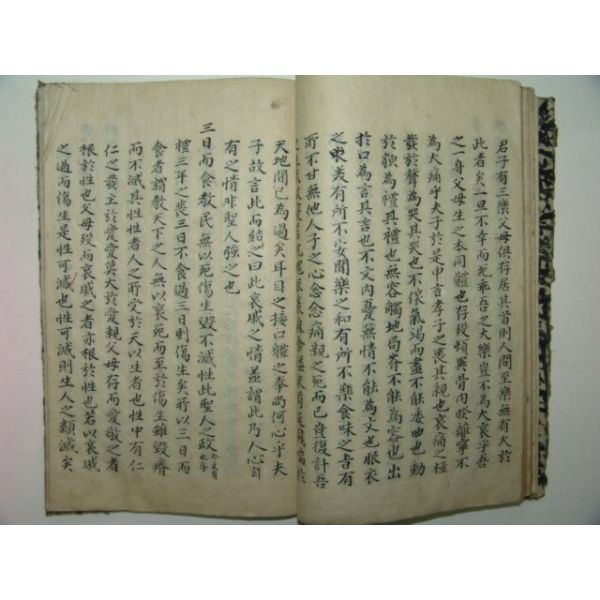 君子有三樂父母俱存居其首則人間至樂無有大於
此者矣一旦不幸而死乖吾之大樂豈不為大哀乎吾
之一身父母生之本同體也存歿頓異骨肉睽離寧不
為大痛乎夫子於是申言孝子之喪其親也哀痛之極
發於聲為哭其哭也不偯氣竭而盡不能委曲也動
於貌為禮其禮也無容觸地局脊不能為容也出
於口為言其言也不文內憂無情不能為文也服衣
之美有所不安聞樂之和有所不樂食味之旨有
所不甘無他人子之心念念痛親之死而已豈復計吾
天地間已為過矣耳目之接口體之奉尚何心乎夫
子故言此而結之曰此哀戚之情蓋謂此乃人心自
有之情非聖人強之也
三日而食教民無以死傷生毀不滅性此聖人之政
禮三年之喪三日不食過三日則傷生矣所以三日而
食者謂教天下之人無以哀死而至於傷生雖毀瘠
而不滅其性性者人之所受於天以生者也性中有仁
仁之發主於愛愛莫大於愛親父母存而愛敬之者
根於性也父母歿而哀戚之者亦根於性也若以哀戚
之過而傷生是性可滅也性可滅則生人之類滅矣